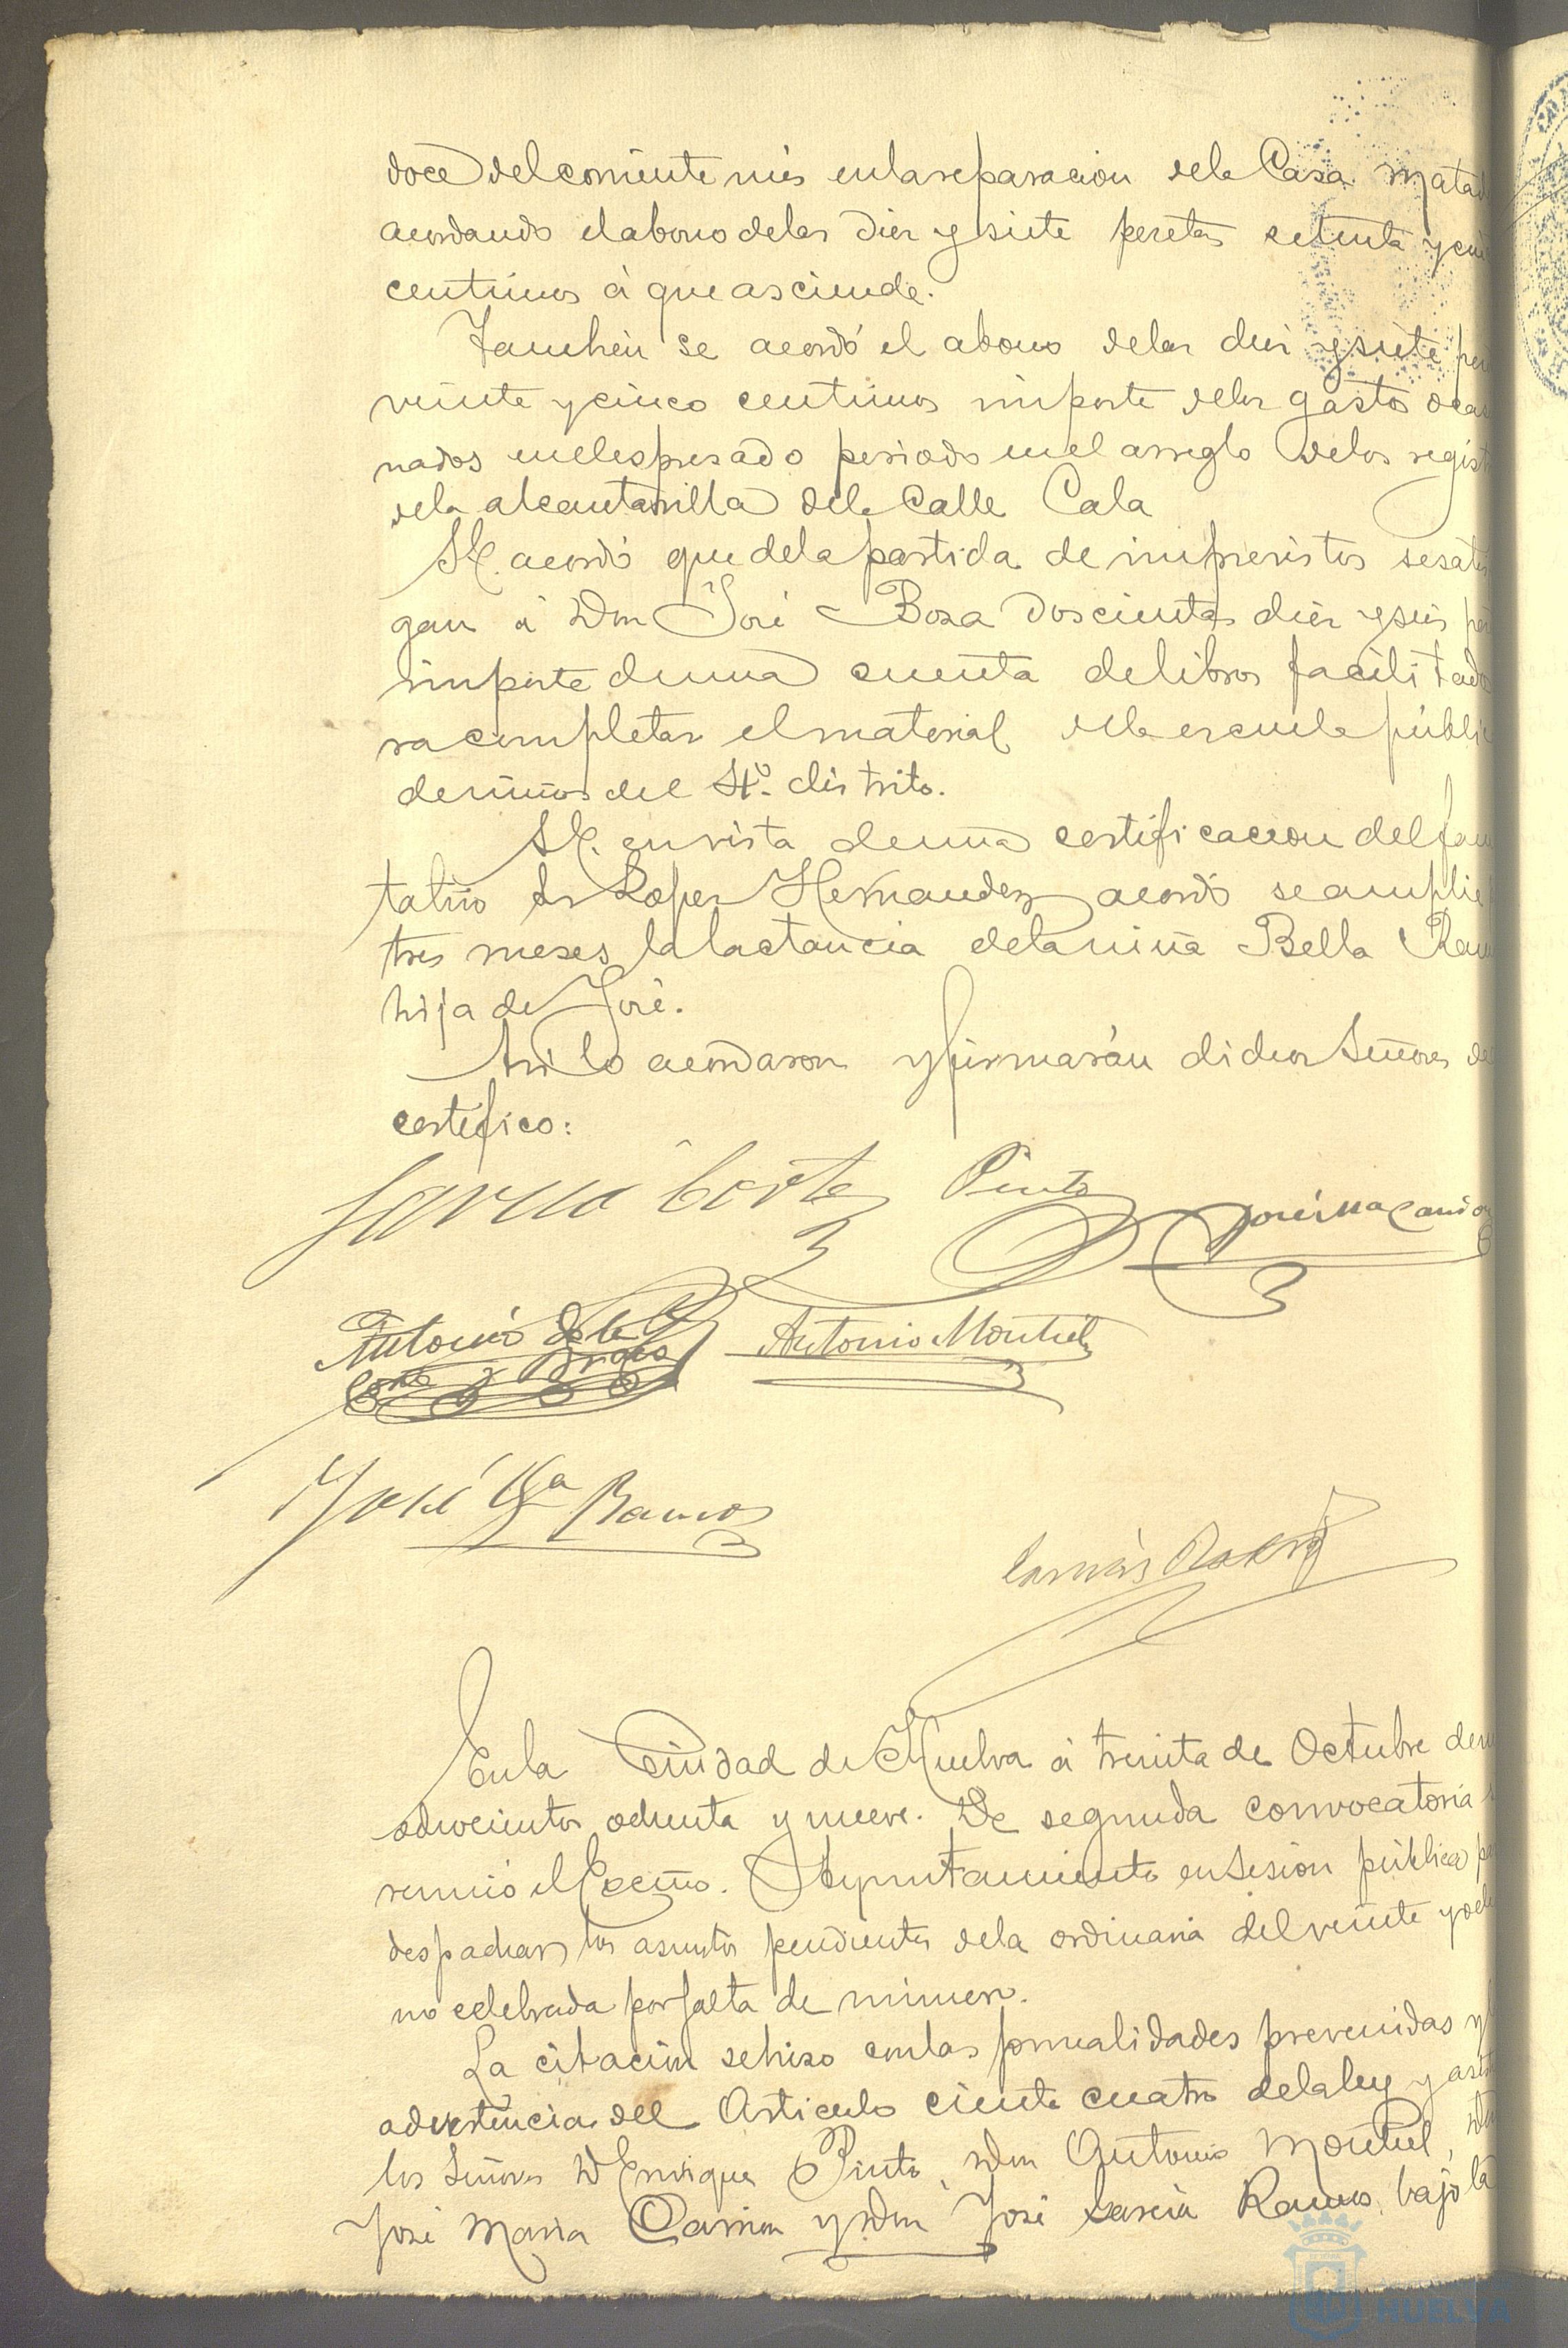 doce del corriente mes en la reparacion de la Casa Matad
acordando el abono de las diez y siete pesetas setenta y cin
centimos á que asciende.
Tambien se acordó el abono de las diez y siete pes
veinte y cinco centimos importe de los gastos ocas
nados en el espresado periodo en el arreglo de los regist
de la alcantarilla de la Calle Cala
S.E. acordó que de la partida de imprevistos se satis
gan á Don José Boza doscientas diez y seis pe
importe de una cuenta de libros facilitado
ra completar el material de la escuela públic
de niños del 4º distrito.
S.E. en vista de una certificacion del facu
tativo Sr Lopez Hernandez acordó se amplie
tres meses la lactancia de la niña Bella Ram
hija de José.
Asi lo acordaron y firmarán dichos Señores de
certifico:
Garcia Cortes Pinto José Mª Carrion
Antonio de la
Corte y Bravo Antonio Montiel
José Gª Ramos
En la Ciudad de Huelva á treinta de Octubre de m
ochocientos ochenta y nueve. De segunda convocatoria s
reunió el Excmo. Ayuntamiento en sesion pública pa
despachar los asuntos pendientes de la ordinaria del veinte y och
no celebrada por falta de número.
La citacion se hizo con las formalidades prevenidas y
advertencia del Articulo ciento cuatro de la ley y asist
los Señores D. Enrique Pinto, Don Antonio Montiel, Don
José Maria Carrion y Don José Garcia Ramos, bajo la
HUELVA